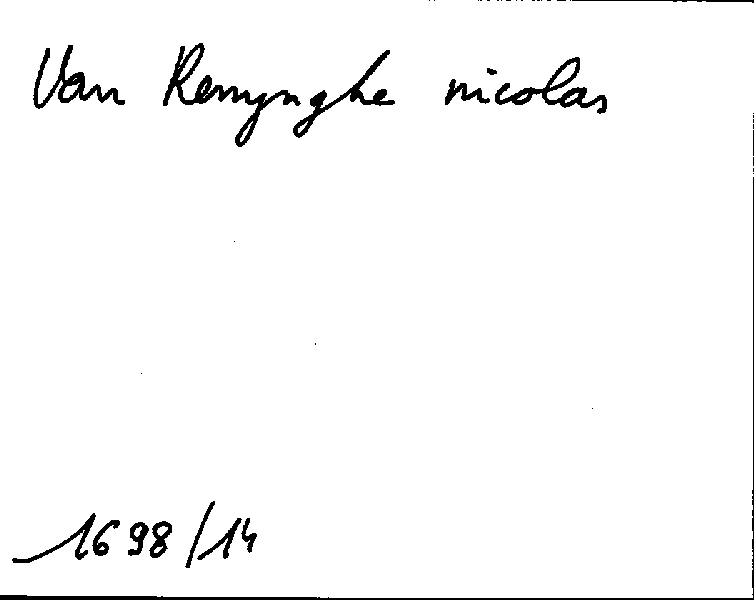 Van Remynghe nicolas
1698/14